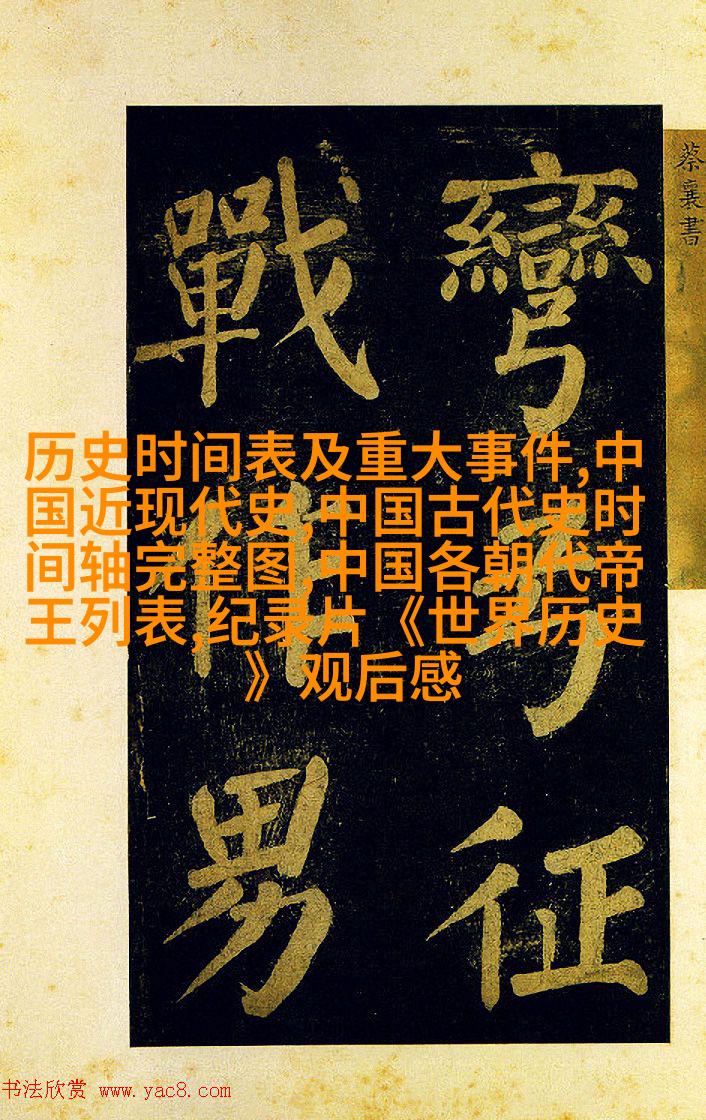 蔡襄書
彎弓征
戰作男
历史时间表及重大事件,中
国近现代史,中国古代史时
间轴完整图,中国各朝代帝
王列表,纪录片《世界历史
》观后感
书法欣赏 www.yac8.com